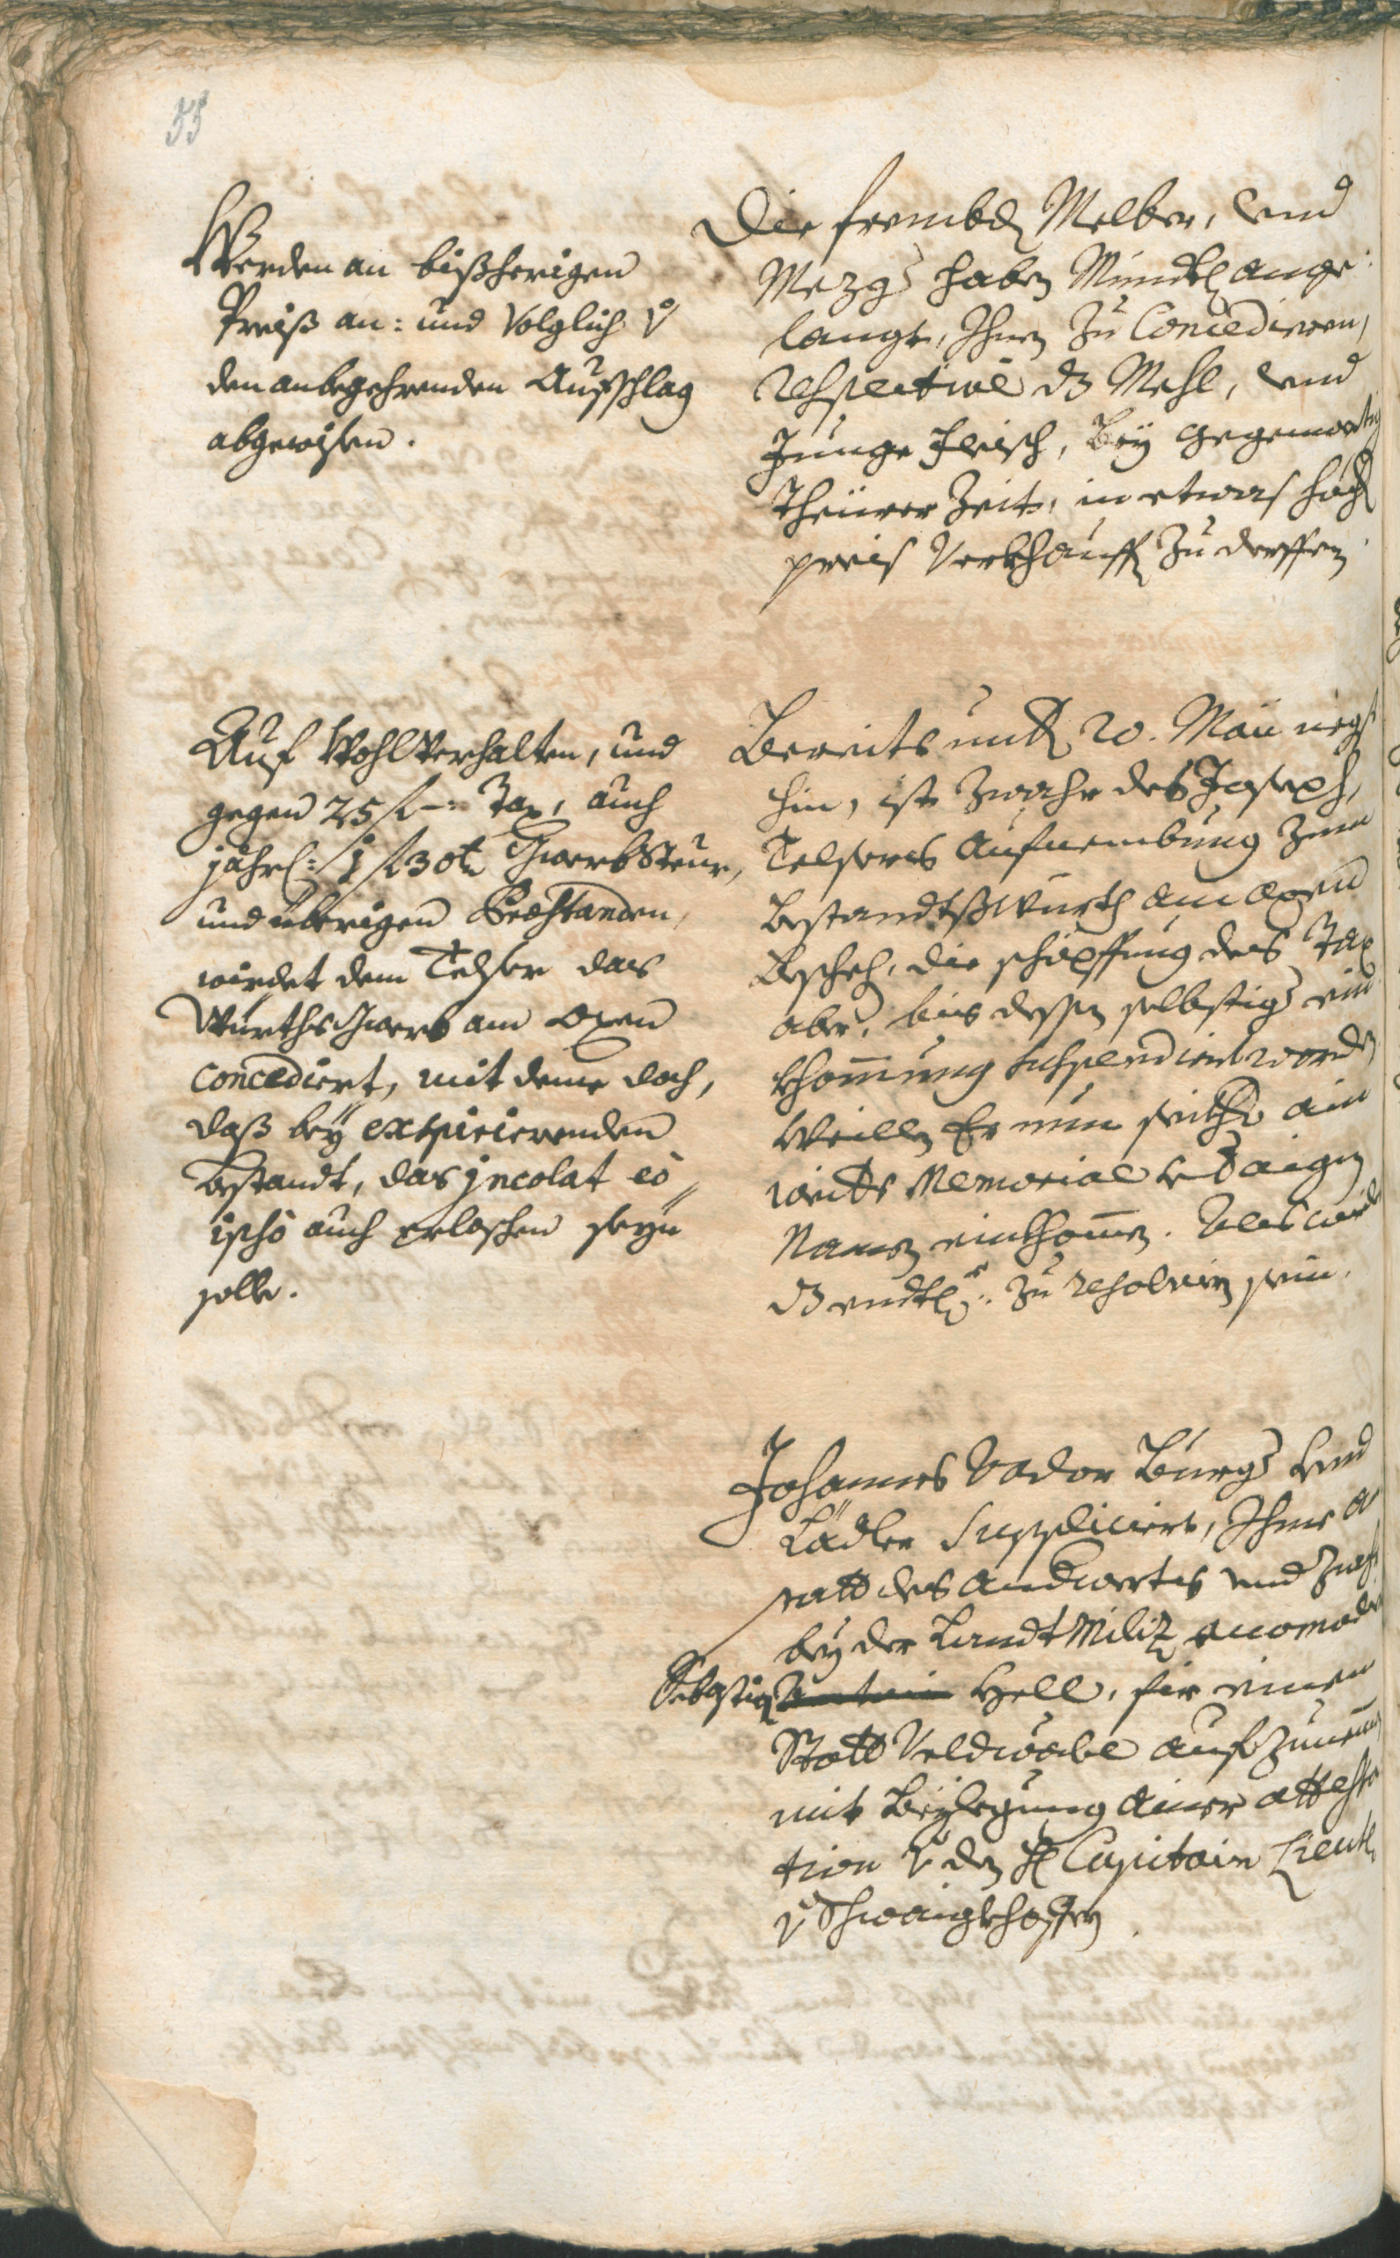 55
Werden an bißherigen
Preiß an: und Volglich v̊
den anbegehrenden Aufschlag
abgewisen.
Die frembdn Melber, vnd
Mezgr haben Mündtl ange:
langt, Ihnen Zu Concedieren,
respective dz Mehl, vnd
Junge Fleisch, Bey gegenwertig
Theürer Zeit, in etwas höch
preis Verkhauffn Zu derffen.
Auf Wohl Verhalten, und
gegen 25 f –: Tax, auch
jährl: 1 f 30 Gwerb Steur,
und übrigen Præstanden,
wirdet dem Telser das
Würths Gwerb am Oxen
concediert, mit deme doch,
daß beÿ expirierenden
Bestandt, das jncolat eò
ipsò auch erloschen seÿn
solle.
Bereits unter 20. Maii negst
hin, ist Zwahr des Joseph,
Telsers Aufnembung Zum
Bestandtßwürth am Oxen
Beschehen, die schöpffung des Tax
aber, bis dessen selbstige ein
khommung suspendiert worden
Weillen Er nun seithero ain
Memorial
Namen einkhommen. Als wird
dz endtl: Zu resolviern sein.
Johannes Vador Burgr Vnd
Ladler Suppliciert, Ihme a
statt des Andwerts vnd
beÿ der Landt Miliz accomod
Sebastian Hell, für einen
Statt Veldwäbl aufzunem̄en
mit Beylegung einer attesta
tion v̊ den H Capitain Lieut
v̊ Schwaigkhoffen